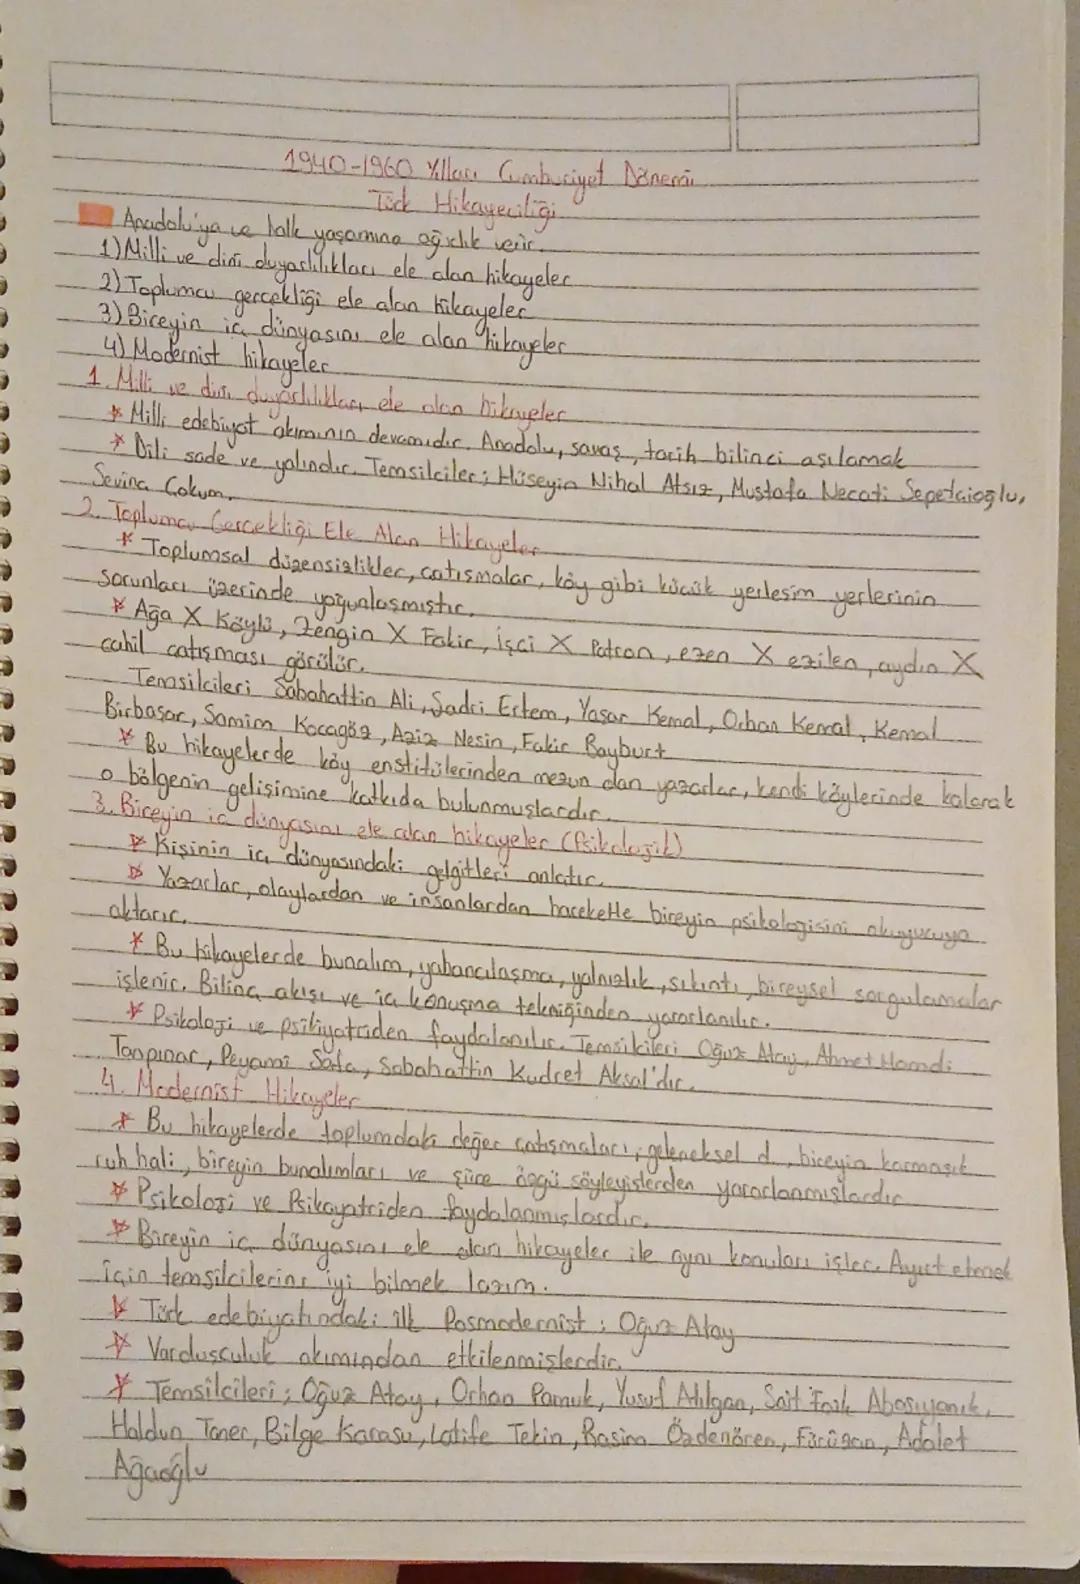 1940-1960 Yılları Cumhuriyet Dönemi
Türk Hikayeciliği
Anadolu'ya ve halk yaşamına ağırlık verir.
1) Milli ve dini duyarlılıkları ele alan hikayeler
2) Toplumcu gerçekliği ele alan hikayeler
3) Bireyin iç dünyasını ele alan hikayeler
4) Modernist hikayeler
1. Milli ve dini duyarlılıkları ele alan hikayeler
* Milli edebiyat akımının devamıdır. Anadolu, savaş, tarih bilinci aşılamak
* Dili sade ve yalındır. Temsilciler; Hüseyin Nihal Atsız, Mustafa Necati Sepetçioğlu,
Sevinç Çokum.
2. Toplumcu Gerçekliği Ele Alan Hikayeler
* Toplumsal düzensizlikler, çatışmalar, köy gibi küçük yerleşim yerlerinin
sorunları üzerinde yoğunlaşmıştır.
* Ağa X Köylü, Zengin X Fakir, işçi X Patron, ezen X ezilen, aydın X
cahil çatışması görülür.
Temsilcileri Sabahattin Ali, Sadri Ertem, Yaşar Kemal, Orhan Kemal, Kemal
Birbaşar, Samim Kocagöz, Aziz Nesin, Fakir Bayburt
* Bu hikayelerde köy enstitülerinden mezun olan yazarlar, kendi köylerinde kalarak
o bölgenin gelişimine katkıda bulunmuşlardır.
3. Bireyin iç dünyasını ele alan hikayeler (Psikolojik)
* Kişinin iç dünyasındaki gelgitleri anlatır.
* Yazarlar, olaylardan ve insanlardan hareketle bireyin psikolojisini okuyucuya
aktarır.
* Bu hikayelerde bunalım, yabancılaşma, yalnızlık, sıkıntı, bireysel sorgulamalar
işlenir. Bilinç akışı ve iç konuşma tekniğinden yararlanılır.
* Psikoloji ve psikiyatriden faydalanılır. Temsilcileri Oğuz Atay, Ahmet Hamdi
Tanpınar, Peyami Safa, Sabahattin Kudret Aksal'dır.
4. Modernist Hikayeler
* Bu hikayelerde toplumdaki değer çatışmaları, geleneksel d., bireyin karmaşık
ruh hali, bireyin bunalımları ve şiire özgü söyleyişlerden yararlanmışlardır
* Psikoloji ve Psikayatriden faydalanmışlardır.
* Bireyin iç dünyasını ele alan hikayeler ile aynı konuları işler. Ayırt etmek
için temsilcilerini iyi bilmek lazım.
* Türk edebiyatındaki ilk Posmodernist: Oğuz Atay
* Varduşculuk akımından etkilenmişlerdir.
* Temsilcileri; Oğuz Atay, Orhan Pamuk, Yusuf Atılgan, Sait Faik Abasıyanık,
Haldun Taner, Bilge Karasu, Latife Tekin, Rasim Özdenören, Fürüzan, Adalet
Ağaoğlu